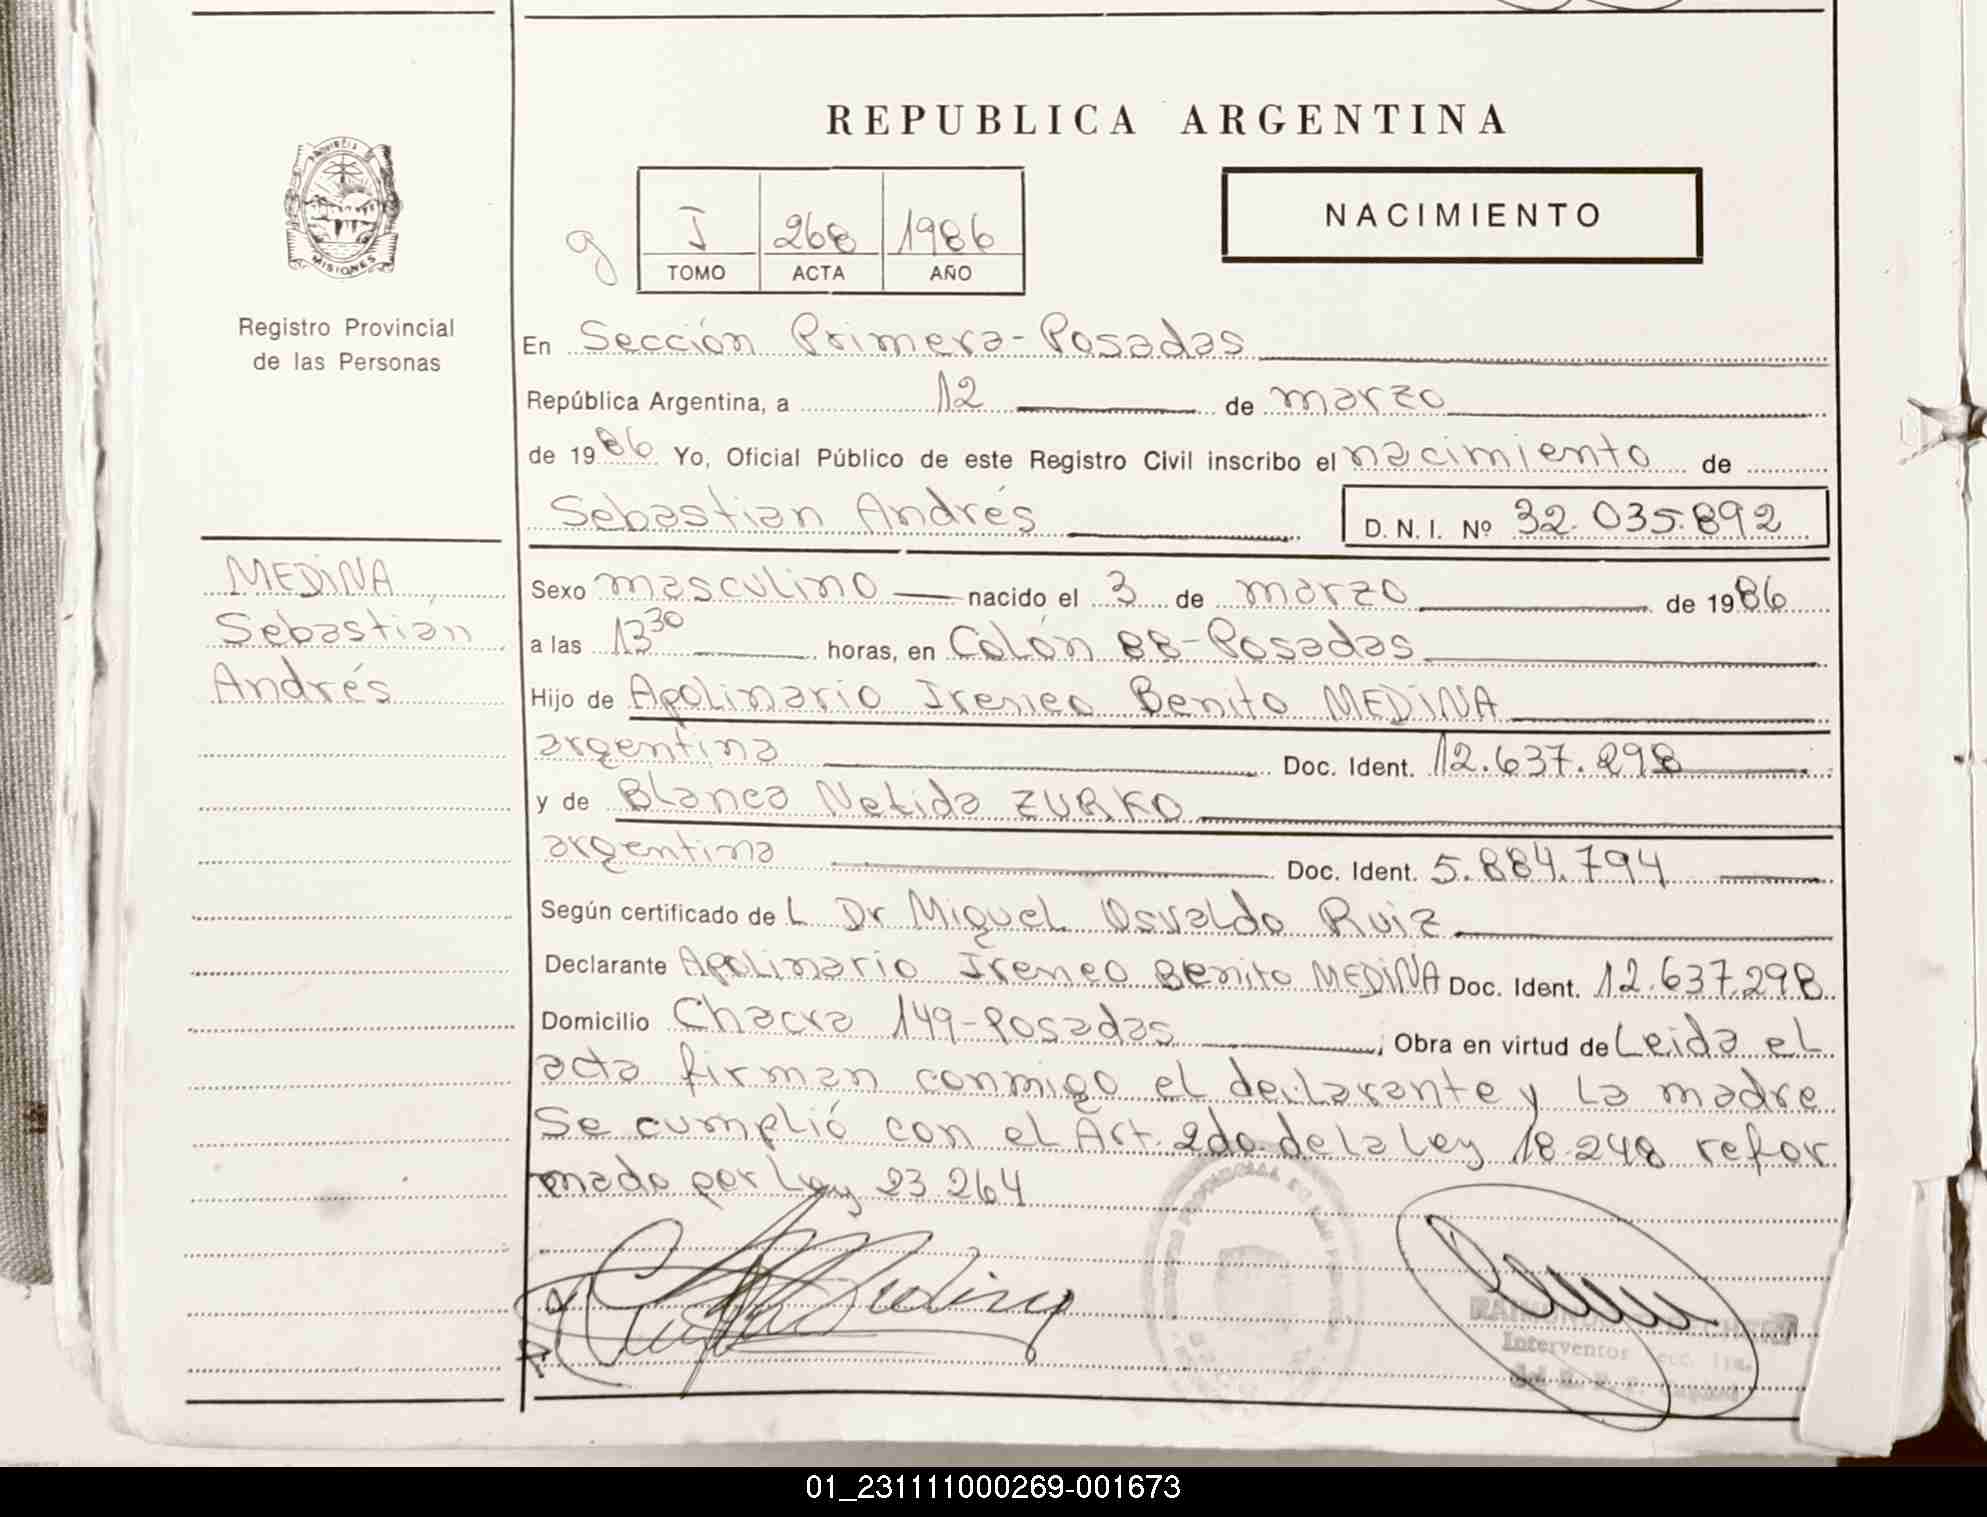 REPUBLICA ARGENTINA
PROVINCIA DE
MISIONES
Registro Provincial
de las Personas
g
J 268 1986
TOMO ACTA AÑO
NACIMIENTO
En Sección Primera-Posadas
República Argentina, a 12 de marzo
de 1986 Yo, Oficial Público de este Registro Civil inscribo el nacimiento de
Sebastian Andrés D.N.I. Nº 32.035.892
MEDINA
Sebastián
Andrés
Sexo masculino nacido el 3 de marzo de 1986
a las 13 30 horas, en Colón BB-Posadas
Hijo de Apolinario Ireneo Benito MEDINA
argentina Doc. Ident. 12.637.298
y de Blanca Nelida ZURKO
argentina Doc. Ident. 5.884.794
Según certificado de L Dr Miguel Osvaldo Ruiz
Declarante Apolinario Ireneo Benito MEDINA Doc. Ident. 12.637.298
Domicilio Chacra 149-Posadas, Obra en virtud de Leida el
acta firman conmigo el declarante y la madre
Se cumplió con el Art. 2do. de la Ley 18.248 refor
mado por Ley 23.264
Medina
Interventos Secc. 1ra.
01_231111000269-001673